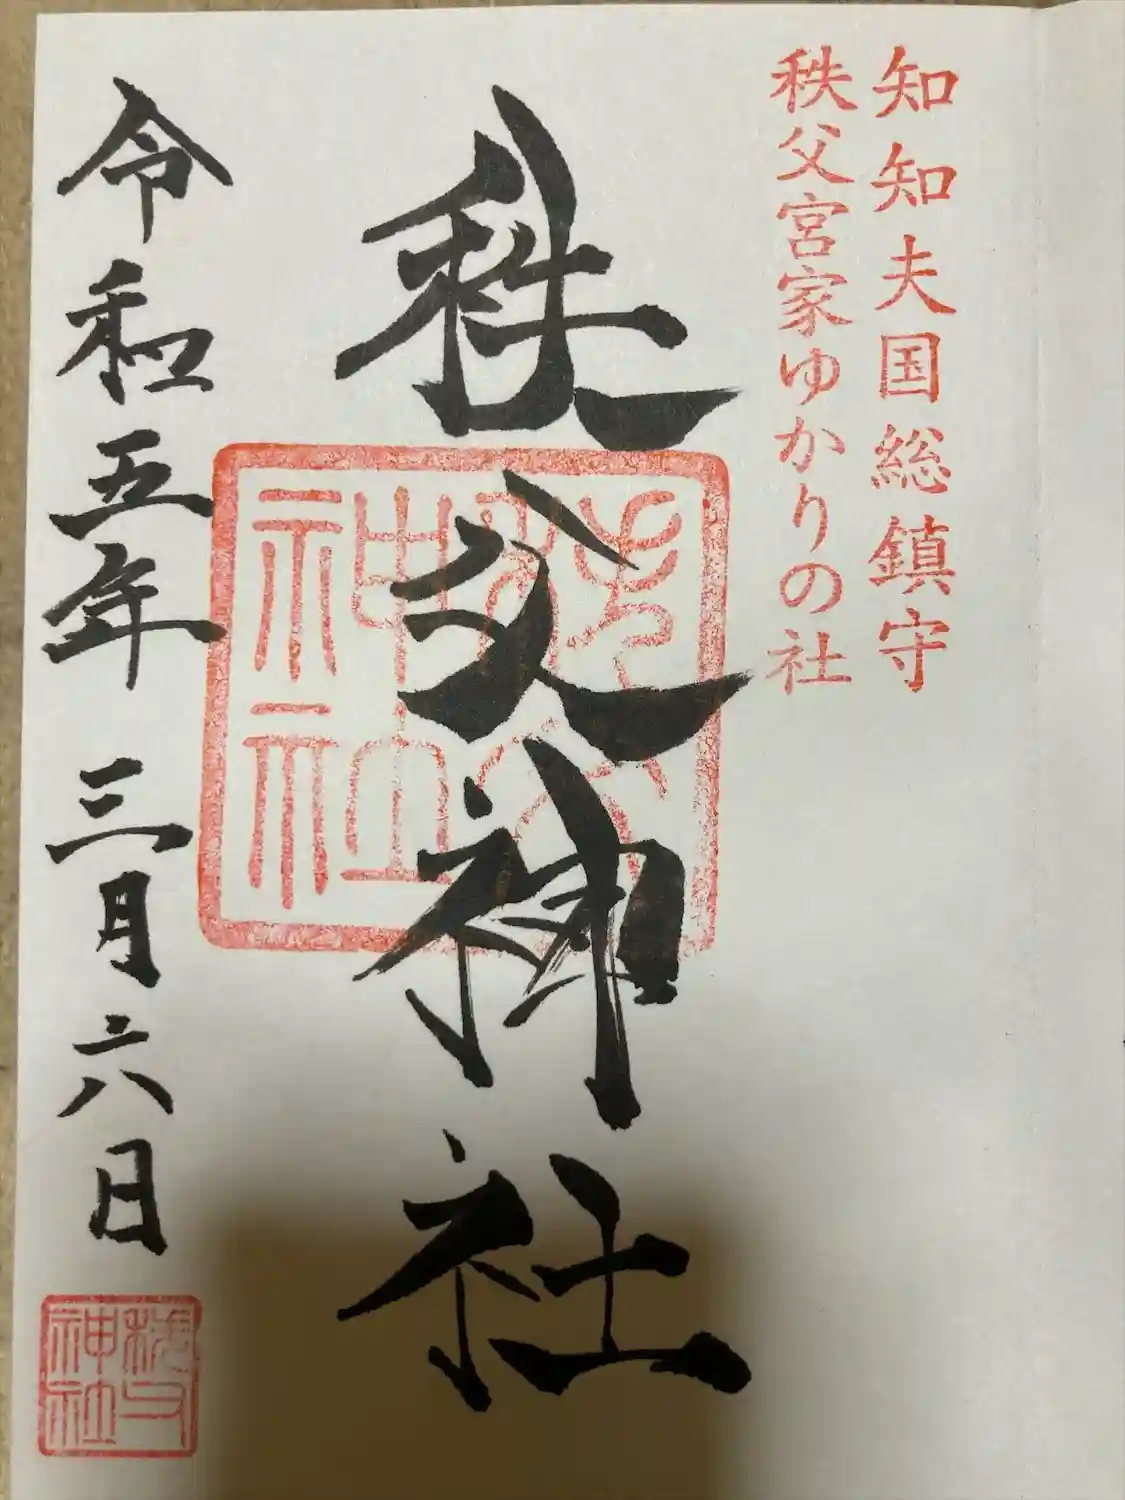 知知夫国総鎮守
秩父宮家ゆかりの社
秩父神社
令和五年三月六日
秩父
神社